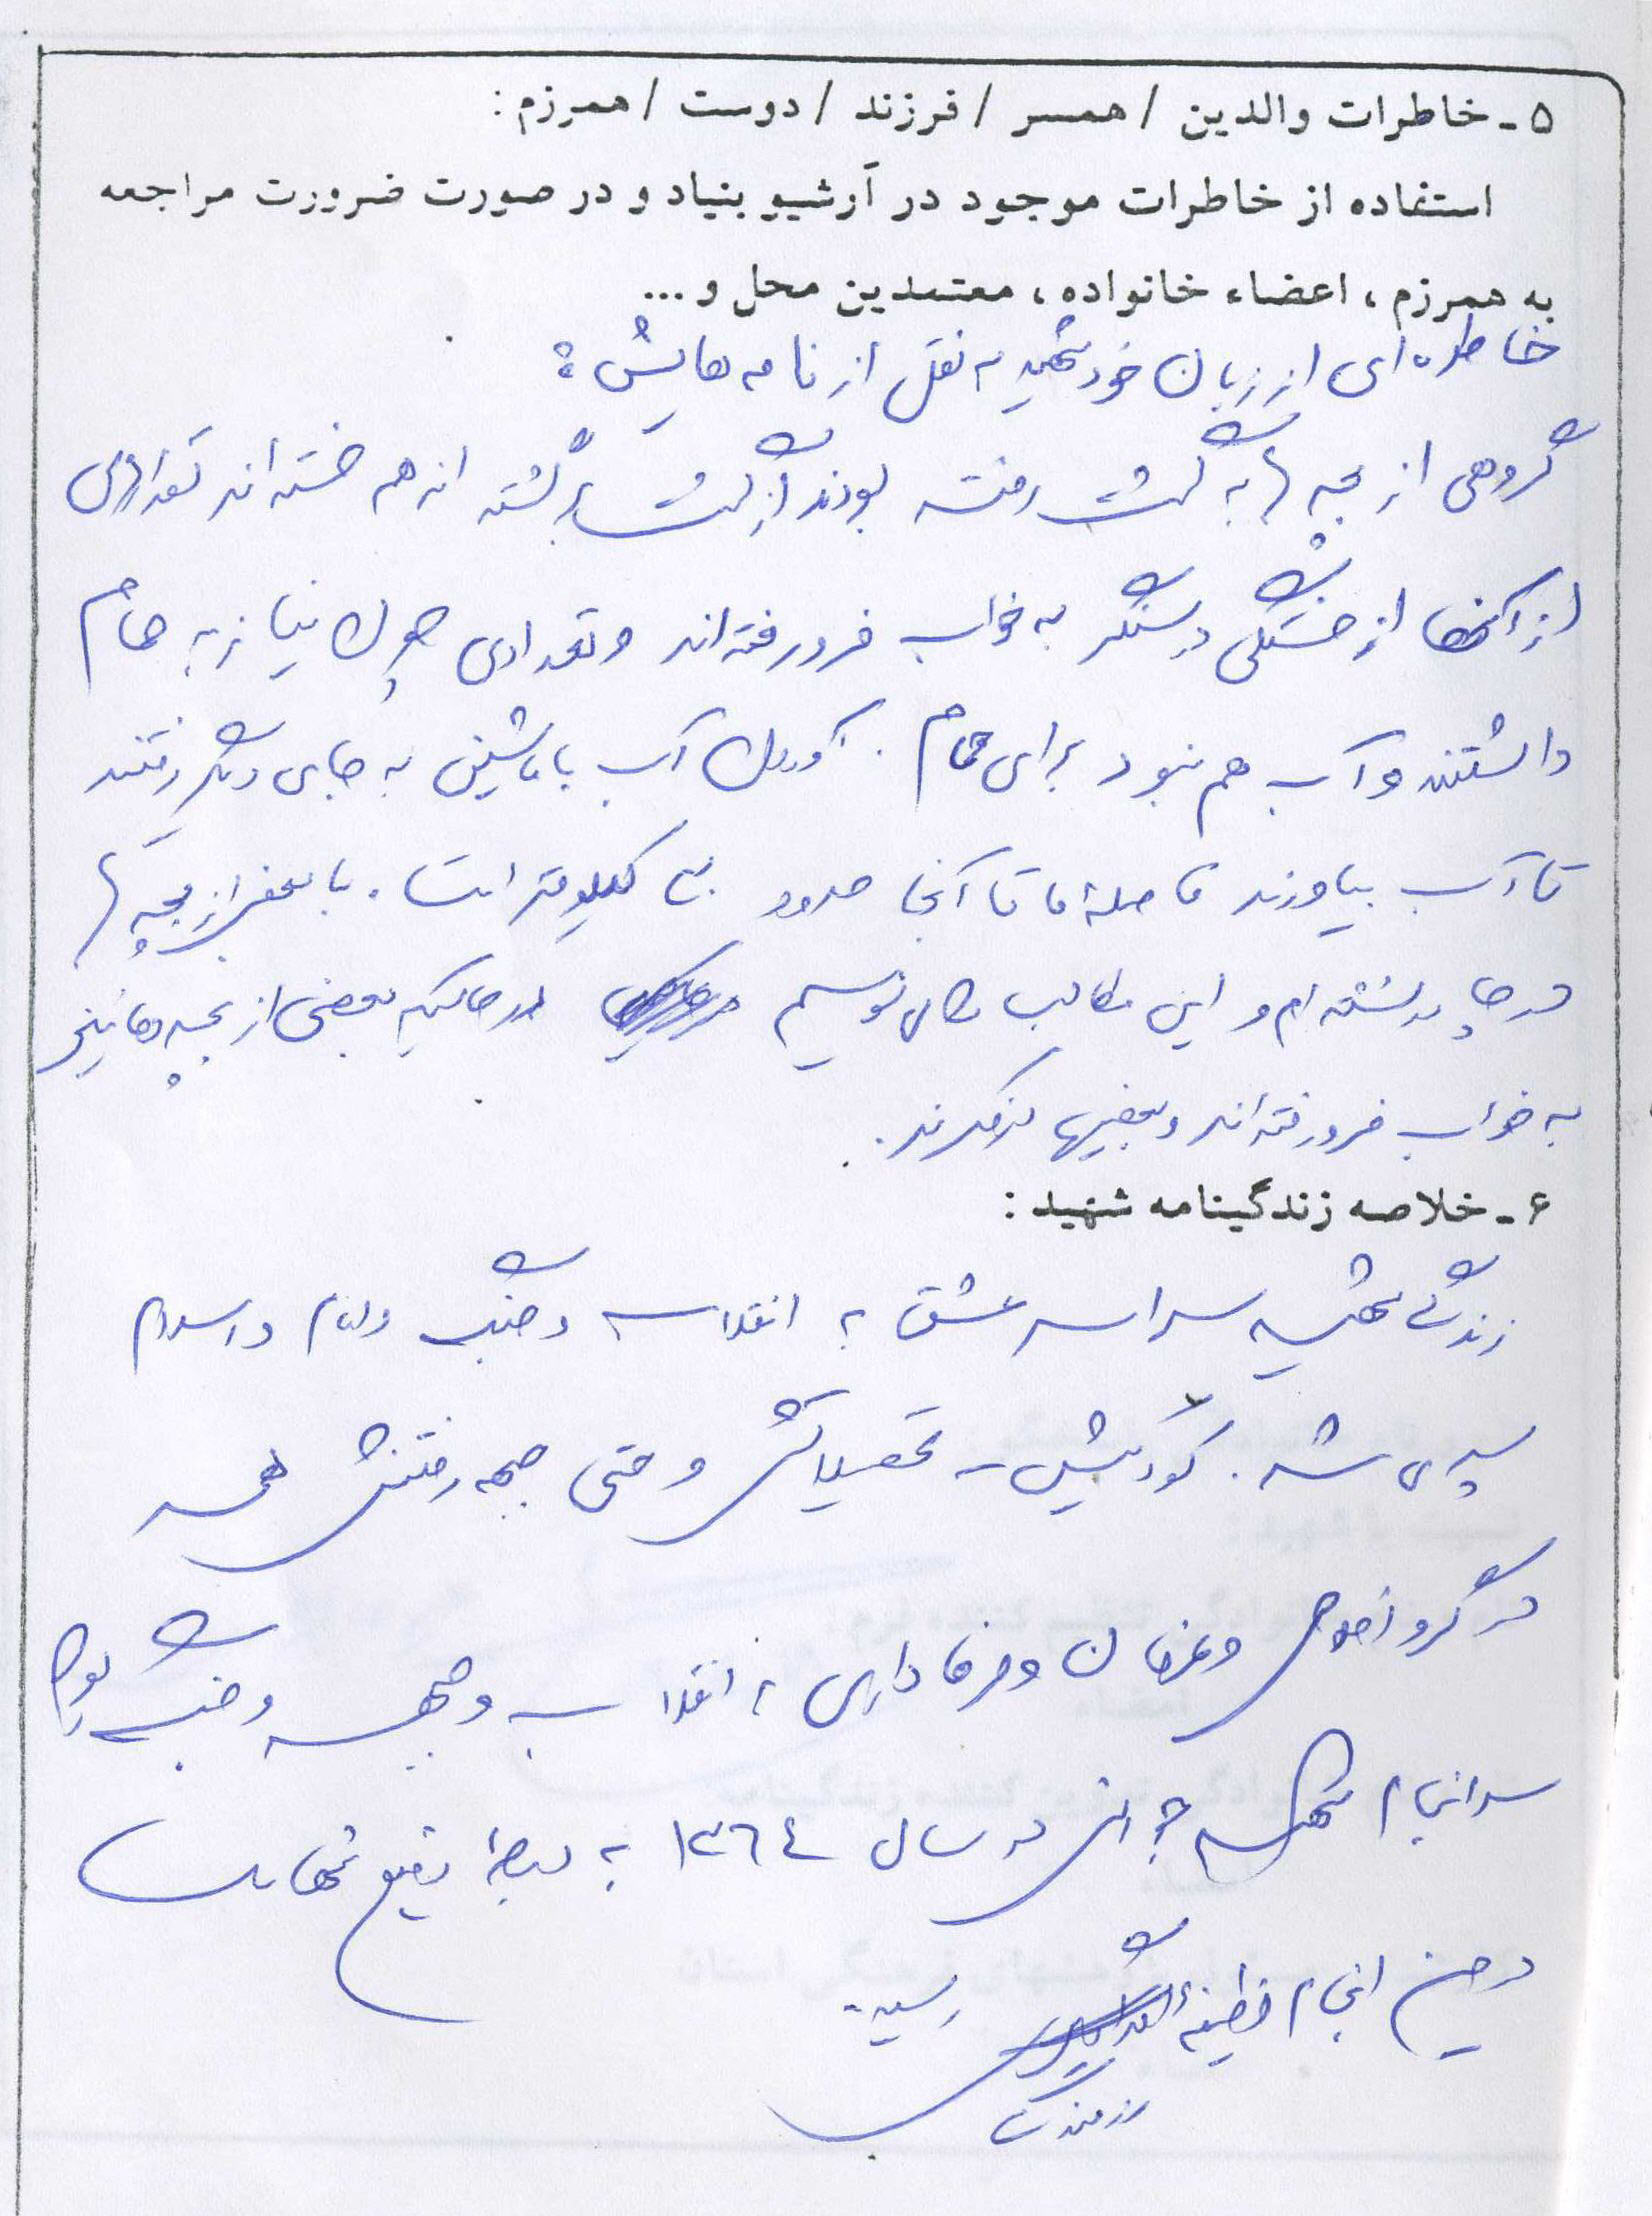 ۵ - خاطرات والدین / همسر / فرزند / دوست / همرزم :
استفاده از خاطرات موجود در آرشیو بنیاد و در صورت ضرورت مراجعه
به همرزم ، اعضاء خانواده ، معتمدین محل و ...
خاطره‌ای از زبان خود شهید به نقل از نامه‌هایش :
گروهی از بچه‌ها به گشت رفته بودند از گشت برگشته‌اند هم خسته‌اند تعدادی
از آنها از خستگی در سنگر به خواب فرو رفته‌اند و تعدادی چون نیاز به حمام
داشتند و آب هم نبود برای حمام . آوردن آب با ماشین به جای دیگر رفتند
تا آب بیاورند فاصله ما تا آنجا حدود کیلومتر است . با بعضی از بچه‌ها
در نشسته‌ام و این مطالب را می‌نویسم در حالیکه بعضی از بچه‌ها نیز
به خواب فرو رفته‌اند و بعضیها
۶ - خلاصه زندگینامه شهید :
زندگی شهید سراسر عشق به انقلاب و جنگ و امام و اسلام
سپری شد . کودکیش - تحصیلاتش و حتی جبهه رفتنش همه
در گرو اخلاص و عرفان و وفاداری به انقلاب و جبهه و جنگ بود
سرانجام شهید در سال ١٣٦٤ به رفیع شهادت
در حین انجام وظیفه رسید .
رزمندگان